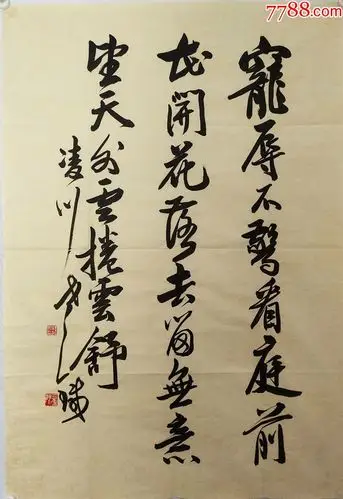 7788.com
寵辱不驚看庭前
花開花落去留無意
望天外雲捲雲舒
凌川